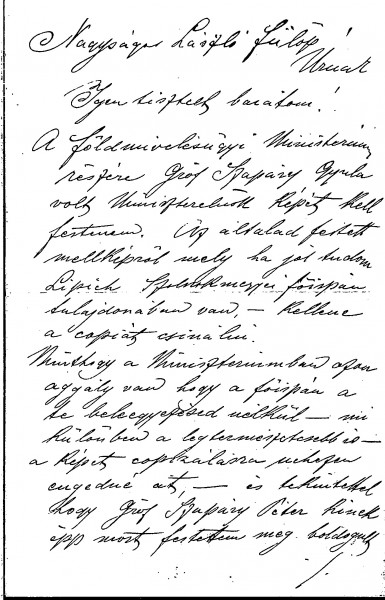 Nagyságos László Fülöp
Úrnak
Igen tisztelt barátom!
A földmivelésügyi Ministerium
részére Gróf Szapáry Gyula
volt Miniszterelnök képét kell
festenem. Az általad festett
mellképről mely ha jól tudom
Lipich Szolnokmegyei főispán
tulajdonában van, – kellene
a copiát csinálni.
Minthogy a Miniszteriumban azon
aggály van hogy a főispán a
te beleegyezésed nélkül – mi
különben a legtermészetesebb is –
a képet copizálásra nehezen
engedné át, – és tekintettel
hogy Gróf Szapáry Péter
épp most festettem meg boldogult